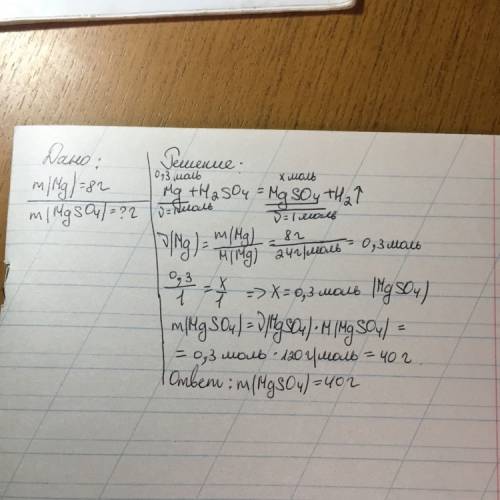 Дано:
m(Mg)=8г
m(MgSO4)=?г
Решение:
0,3 моль x моль
Mg+H2SO4=MgSO4+H2↑
ν=1моль ν=1моль
ν(Mg)=m(Mg)/M(Mg)=8г/24г/моль=0,3моль
0,3/1=x/1 => x=0,3моль (MgSO4)
m(MgSO4)=ν(MgSO4)·M(MgSO4)=
=0,3моль·120г/моль=40г
Ответ: m(MgSO4)=40г